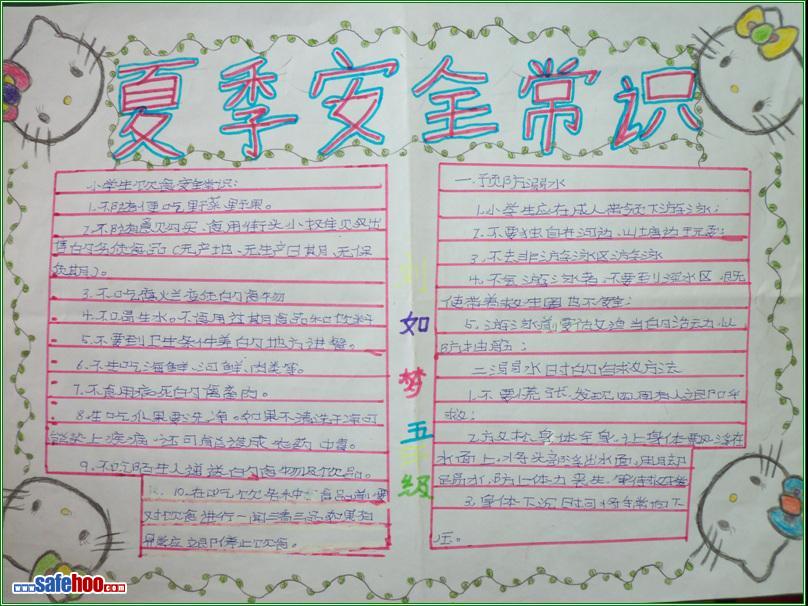 夏季安全常识
小学生饮食安全常识:
1.不随便吃野菜野果。
2.不随意购买、食用街头小摊贩出
售的劣质食品(无产地、无生产日期、无保
质期)。
3.不吃腐烂变质的食物
4.不喝生水。不食用过期食品和饮料
5.不要到卫生条件差的地方进餐。
6.不生吃海鲜、河鲜、肉类等。
7.不食用病死的禽畜肉。
8.生吃水果要洗净。如果不清洗干净可
能染上疾病,还可能造成农药中毒。
9.不吃陌生人赠送的食物及饮品。
10.在吃饮食品前要
对饮食进行一闻二看三品,如果有
异常应立即停止饮食。
刘如梦五年级
一.预防溺水
1.小学生应在成人带领下游泳;
2.不要独自在河边、山塘边玩耍;
3.不去非游泳区游泳
4.不会游泳者,不要到深水区,既
使带着救生圈也不安全;
5.游泳前要做适当的活动,以
防抽筋;
二.溺水时的自救方法
1.不要慌张,发现四周有人立即呼
救;
2.放松身体全身,让身体飘浮在
水面上,将头部浮出水面,用脚
踢水,防止体力丧失,等待救援
3.身体下沉时,将手掌向下
压。
www.safehoo.com